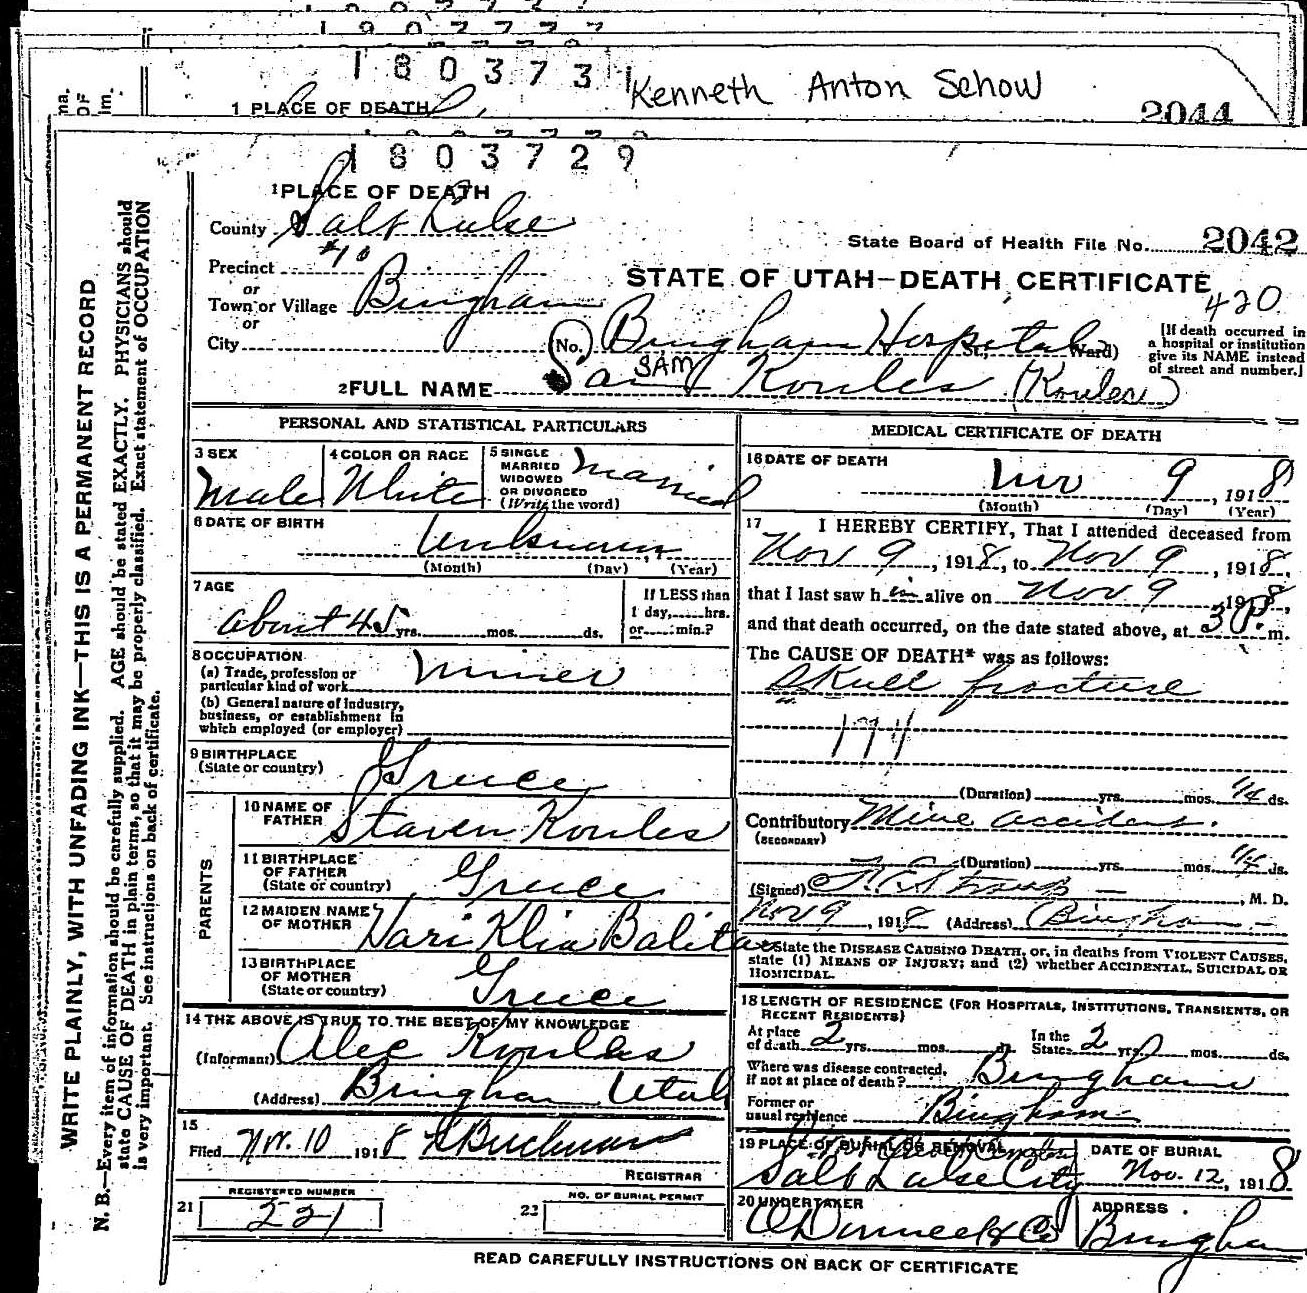 1803731
Kenneth Anton Schow
1 PLACE OF DEATH
2044
1803729
1 PLACE OF DEATH
County Salt Lake
State Board of Health File No. 2042
Precinct #10
or
Town or Village Bingham
STATE OF UTAH—DEATH CERTIFICATE
420
or
City (No. Bingham Hospital St.; Ward)
[If death occurred in
a hospital or institution
give its NAME instead
of street and number.]
2 FULL NAME Sam SAM Koules (Koulea)
WRITE PLAINLY, WITH UNFADING INK—THIS IS A PERMANENT RECORD
N. B.—Every item of information should be carefully supplied. AGE should be stated EXACTLY. PHYSICIANS should
state CAUSE OF DEATH in plain terms, so that it may be properly classified. Exact statement of OCCUPATION
is very important. See instructions on back of certificate.
PERSONAL AND STATISTICAL PARTICULARS
3 SEX
Male
4 COLOR OR RACE
White
5 SINGLE
MARRIED
WIDOWED
OR DIVORCED
(Write the word)
Married
6 DATE OF BIRTH
Unknown
(Month) (Day) (Year)
7 AGE
about 45 yrs. mos. ds.
If LESS than
1 day, hrs.
or min.?
8 OCCUPATION
(a) Trade, profession or
particular kind of work Miner
(b) General nature of Industry,
business, or establishment in
which employed (or employer)
9 BIRTHPLACE
(State or country) Greece
PARENTS
10 NAME OF
FATHER Staven Koules
11 BIRTHPLACE
OF FATHER
(State or country) Greece
12 MAIDEN NAME
OF MOTHER Hari Klia Balitas
13 BIRTHPLACE
OF MOTHER
(State or country) Greece
14 THE ABOVE IS TRUE TO THE BEST OF MY KNOWLEDGE
(Informant) Alec Koules
(Address) Bingham Utah
15
Filed Nov. 10 1918
REGISTRAR
21 REGISTERED NUMBER
221
22 NO. OF BURIAL PERMIT
MEDICAL CERTIFICATE OF DEATH
16 DATE OF DEATH
Nov 9, 1918
(Month) (Day) (Year)
17 I HEREBY CERTIFY, That I attended deceased from
Nov 9, 1918, to Nov 9, 1918,
that I last saw him alive on Nov 9 1918,
and that death occurred, on the date stated above, at 3 P. m.
The CAUSE OF DEATH* was as follows:
Skull fracture
(Duration) yrs. mos. 1/4 ds.
Contributory Mine accident.
(SECONDARY)
(Duration) yrs. mos. 1/4 ds.
(Signed) Straup, M. D.
Nov 9, 1918 (Address) Bingham
*State the DISEASE CAUSING DEATH, or, in deaths from VIOLENT CAUSES,
state (1) MEANS OF INJURY; and (2) whether ACCIDENTAL, SUICIDAL OR
HOMICIDAL.
18 LENGTH OF RESIDENCE (FOR HOSPITALS, INSTITUTIONS, TRANSIENTS, OR
RECENT RESIDENTS)
At place
of death 2 yrs. mos. ds.
In the
State 2 yrs. mos. ds.
Where was disease contracted,
if not at place of death? Bingham
Former or
usual residence Bingham
19 PLACE OF BURIAL OR REMOVAL
Salt Lake City
DATE OF BURIAL
Nov. 12, 1918
20 UNDERTAKER
O'Donnell & Co
ADDRESS
Bingham
READ CAREFULLY INSTRUCTIONS ON BACK OF CERTIFICATE